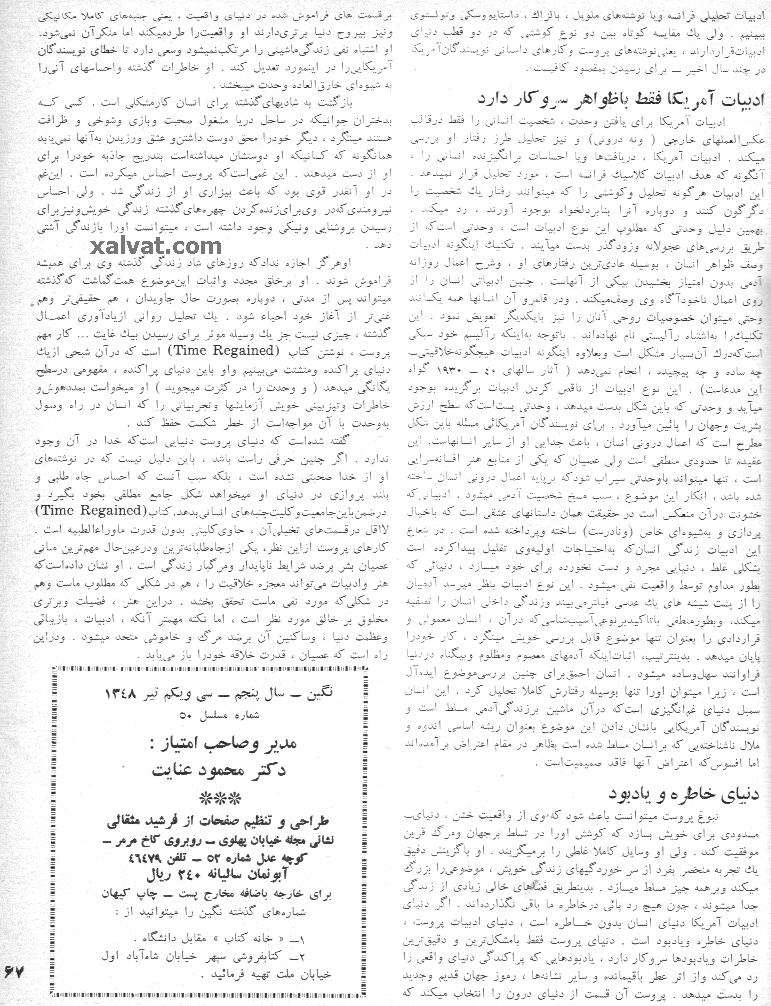 ادبیات تحلیلی فرانسه ویا نوشته‌های ملویل ، بالزاك ، داستایووسکی وتولستوی
ببینیم . ولی یك مقایسه کوتاه بین دو نوع کوششی که در دو قطب دنیای
ادبیات‌قراردارند ، یعنی‌نوشته‌های پروست وکارهای داستانی نویسندگان‌آمریکا
در چند سال اخیر ــ برای رسیدن بمقصود کافیست .
ادبیات آمریکا فقط باظواهر سروکار دارد
ادبیات آمریکا برای یافتن وحدت ، شخصیت انسانی را فقط درقالب
عکس‌العملهای خارجی ( ونه درونی) و نیز تحلیل طرز رفتار او بررسی
میکند . ادبیات آمریکا ، دریافت‌ها ویا احساسات برانگیزنده انسانی را ،
آنگونه که هدف ادبیات کلاسیك فرانسه است ، مورد تحلیل قرار نمیدهد .
این ادبیات هرگونه تحلیل وکوششی را که میتوانند رفتار یك شخصیت را
دگرگون کنند و دوباره آنرا بنابدلخواه بوجود آورند ، رد میکند .
بهمین دلیل وحدتی که مطلوب این نوع ادبیات است ، وحدتی است‌که از
طریق بررسی‌های عجولانه وزودگذر بدست میآیند . تکنیك اینگونه ادبیات
وصف ظواهر انسان ، بوسیله عادی‌ترین رفتارهای او ، وشرح اعمال روزانه
آدمی بدون امتیاز بخشیدن بیکی از آنهاست . چنین ادبیاتی انسان را از
روی اعمال ناخودآگاه وی وصف‌میکند . ودر قلمرو آن انسانها همه یکسانند
وحتی میتوان خصوصیات روحی آنان را نیز بایکدیگر تعویض نمود . این
تکنیك‌را به‌اشتباه رآلیستی نام نهاده‌اند . باتوجه به‌اینکه رآلیسم خود سبکی
است‌که‌درك آن‌بسیار مشکل است وبعلاوه اینگونه ادبیات هیچگونه‌خلاقیتی‌ــ
چه ساده و چه پیچیده ، انجام نمی‌دهد ( آثار سالهای ۴۰ ــ ۱۹۳۰ گواه
این مدعاست) . این نوع ادبیات از ناقص کردن ادبیات برگزیده بوجود
میآید و وحدتی که باین شکل بدست میدهد ، وحدتی پست‌است‌که سطح ارزش
بشریت وجهان را پائین میآورد . برای نویسندگان آمریکائی مسئله باین شکل
مطرح است که اعمال درونی انسان ، باعث جدایی او از سایر انسانهاست. این
عقیده تا حدودی منطقی است ولی عصیان که یکی از منابع هنر افسانه‌سرایی
است ، تنها میتواند باوحدتی سیراب شودکه برپایه اعمال درونی انسان ساخته
شده باشد ، انکار این موضوع ، سبب مسخ شخصیت آدمی میشود . ادبیاتی‌که
خشونت درآن منعکس است در حقیقت همان داستانهای عشقی است که باخیال
پردازی و به‌شیوه‌ای خاص (ونادرست) ساخته وپرداخته شده است . در شعاع
این ادبیات زندگی انسان‌که به‌احتیاجات اولیه‌وی تقلیل پیداکرده است
بشکلی غلط ، دنیایی مجرد و دست نخورده برای خود میسازد ، دنیائی که
بطور مداوم توسط واقعیت نفی میشود . این نوع ادبیات بنظر میرسد آدمیان
را از پشت شیشه های یك عدسی فیلتر می‌بیند وزندگی داخلی انسان را تصفیه
میکند، وبطورمنطقی باتاکیدبرنوعی‌آسیب‌شناسی‌که درآن ، انسان معمولی و
قراردادی را بعنوان تنها موضوع قابل بررسی خویش مینگرد ، کار خودرا
پایان میدهد . بدینترتیب، اثبات‌اینکه آدمهای معصوم ومظلوم وبیگناه دردنیا
فراوانند سهل‌وساده میشود . انسان احمق‌برای چنین بررسی‌موضوع ایده‌آل
است ، زیرا میتوان اورا تنها بوسیله رفتارش کاملا تحلیل کرد . این انسان
سمبل دنیای غم‌انگیزی است‌که درآن ماشین برزندگی‌آدمی مسلط است و
نویسندگان آمریکایی بانشان دادن این موضوع بعنوان ریشه اساسی اندوه و
ملال ناشناخته‌ایی که برانسان مسلط شده است بظاهر در مقام اعتراض برآمده‌اند
اما افسوس‌که اعتراض آنها فاقد صمیمیت‌است .
دنیای خاطره و یادبود
نبوغ پروست میتوانست باعث شود که‌وی از واقعیت خشن ، دنیایی
مسدودی برای خویش بسازد که کوشش اورا در تسلط برجهان ومرگ قرین
موفقیت کند . ولی او وسایل کاملا غلطی را برمیگزیند . او باگزینش دقیق
یك تجربه منحصر بفرد از سر خوردگیهای زندگی خویش ، موضوعی‌را بزرگ
میکند وبرهمه چیز مسلط میسازد . بدینطریق فضاهای خالی زیادی از زندگی
جدا میشوند ، چون هیچ رد پائی درخاطره ما باقی نگذارده‌اند . اگر دنیای
ادبیات آمریکا دنیای انسان بدون خــاطره است ، دنیای ادبیات پروست ،
دنیای خاطره ویادبود است . دنیای پروست فقط بامشکل‌ترین و دقیق‌ترین
خاطرات ویادبودها سروکار دارد ، یادبودهایی که پراکندگی دنیای واقعی را
رد می‌کند واز اثر عطر باقیمانده و سایر نشانه‌ها ، رموز جهان قدیم وجدید
را بدست میدهد . پروست آن قسمت از دنیای درون را انتخاب میکند که
برقسمت های فراموش شده در دنیای واقعیت . یعنی جنبه‌های کاملا مکانیکی
ونیز بیروح دنیا برتری‌دارند او واقعیت‌را طردمیکند اما منکرآن نمی‌شود.
او اشتباه نفی زندگی‌ماشینی را مرتکب‌نمیشود وسعی دارد تا خطای نویسندگان
آمریکایی‌را در اینمورد تعدیل کند . او خاطرات گذشته واحساسهای آنی‌را
به شیوه‌ای خارق‌العاده وحدت میبخشد .
بازگشت به شادیهای‌گذشته برای انسان کارمشکلی است . کسی کـه
بدختران جوانیکه در ساحل دریا مشغول صحبت وبازی وشوخی و ظرافت
هستند مینگرد ، دیگر خودرا محق دوست داشتن‌و عشق ورزیدن به‌آنها نمی‌یابد
همانگونه که کسانیکه او دوستشان میداشته‌است بتدریج جاذبه خودرا برای
او از دست میدهند . این غمی‌است‌که پروست احساس میکرده است . این‌غم
در او آنقدر قوی بود که باعث بیزاری او از زندگی شد . ولی احساس
نیرومندی‌که‌در وی‌برای‌زنده‌کردن چهره‌های‌گذشته زندگی خویش‌ونیزبرای
رسیدن بروشنایی ونیکی وجود داشته است ، میتوانست اورا بازندگی آشتی
دهد .
xalvat.com
اوهرگز اجازه ندادکه روزهای شاد زندگی گذشته وی برای همیشه
فراموش شوند . او برخلق مجدد واثبات این‌موضوع همت‌گماشت که‌گذشته
میتواند پس از مدتی ، دوباره بصورت حال جاویدان ، هم حقیقی‌تر وهم
غنی‌تر از آغاز خود احیاء شود . یك تحلیل روانی ازیادآوری اعمــال
گذشته ، چیزی نیست جز یك وسیله موثر برای رسیدن بیك غایت ... کار مهم
پروست ، نوشتن کتاب (Time Regained) است که درآن شبحی ازیك
دنیای پراکنده ومتشتت می‌بینیم واو باین دنیای پراکنده ، مفهومی درسطح
یگانگی میدهد ( و وحدت را در کثرت میجوید ) او میخواست بمددهوش‌و
خاطرات وتیزبینی خویش آزمایشها وتجربیاتی را که انسان در راه وصول
به‌وحدت با آن مواجه‌است از خطر شکست حفظ کند .
گفته شده‌است که دنیای پروست دنیایی است‌که خدا در آن وجود
ندارد . اگر چنین حرفی راست باشد ، باین دلیل نیست که در نوشته‌های
او از خدا صحبتی نشده است ، بلکه سبب آنست که احساس جاه طلبی و
بلند پروازی در دنیای او میخواهد شکل جامع مطلقی بخود بگیرد و
درضمن‌باین‌جامعیت‌وکلیت‌جنبه‌های انسانی‌بدهد.کتاب(Time Regained)
لااقل درقسمت‌های تخیلی‌آن ، حاوی‌کلیتی بدون قدرت ماوراءالطبیه است .
کارهای پروست ازاین نظر، یکی ازجاه‌طلبانه‌ترین ودرعین‌حال مهم‌ترین مبانی
عصیان بشر برضد شرایط ناپایدار ومرگبار زندگی است . او نشان داده‌است‌که
هنر وادبیات می‌تواند معجزه خلاقیت را ، هم در شکلی که مطلوب ماست وهم
در شکلی‌که مورد نفی ماست تحقق بخشد . دراین هنر ، فضیلت وبرتری
مخلوق بر خالق مورد نظر است ، اما نکته مهمتر آنکه ، ادبیات ، بازیبائی
وعظمت دنیا ، وساکنین آن برضد مرگ و خاموشی متحد میشود . ودراین
راه است که عصیان ، قدرت خلاقه خودرا باز می‌یابد .
نگین ــ سال پنجم ــ سی ویکم تیر ۱۳۴۸
شماره مسلسل ۵۰
مدیر وصاحب امتیاز :
دکتر محمود عنایت
***
طراحی و تنظیم صفحات از فرشید مثقالی
نشانی مجله خیابان پهلوی ــ روبروی کاخ مرمر ــ
کوچه عدل شماره ۵۲ ــ تلفن ۴۶۴۷۹
آبونمان سالیانه ۲۴۰ ریال
برای خارجه باضافه مخارج پست ــ چاپ کیهان
شماره‌های گذشته نگین را میتوانید از :
۱ــ « خانه کتاب » مقابل دانشگاه .
۲ــ کتابفروشی سپهر خیابان شاه‌آباد اول
خیابان ملت تهیه فرمائید .
۶۷